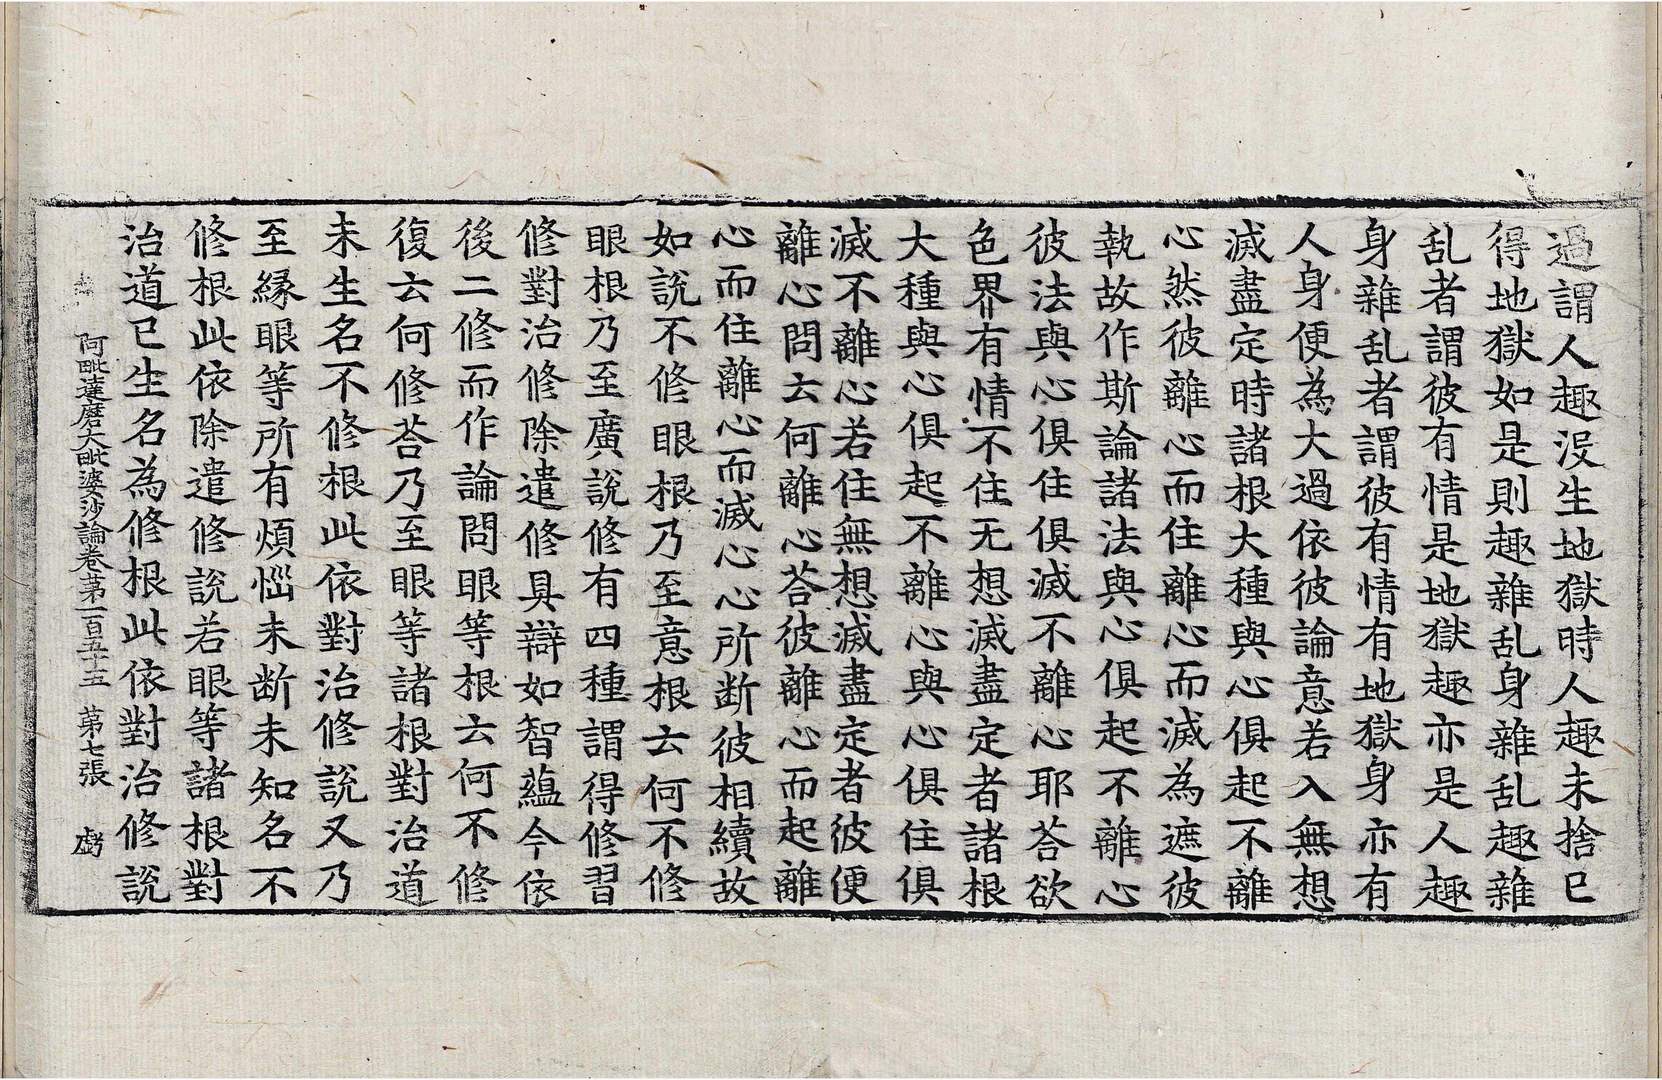 過謂人趣没生地獄時人趣未捨已
得地獄如是則趣雜乱身雜乱趣雜
乱者謂彼有情是地獄趣亦是人趣
身雜乱者謂彼有情有地獄身亦有
人身便為大過依彼論意若入無想
滅盡定時諸根大種與心俱起不離
心然彼離心而住離心而滅為遮彼
執故作斯論諸法與心俱起不離心
彼法與心俱住俱滅不離心耶荅欲
色界有情不住无想滅盡定者諸根
大種與心俱起不離心與心俱住俱
滅不離心若住無想滅盡定者彼便
離心問云何離心荅彼離心而起離
心而住離心而滅心心所断彼相續故
如說不修眼根乃至意根云何不修
眼根乃至廣說修有四種謂得修習
修對治修除遣修具辯如智蘊今依
後二修而作論問眼等根云何不修
復云何修荅乃至眼等諸根對治道
未生名不修根此依對治修說又乃
至縁眼等所有煩惱未断未知名不
修根此依除遣修說若眼等諸根對
治道已生名為修根此依對治修說
阿毗達磨大毗婆沙論卷第一百五十五 第七張